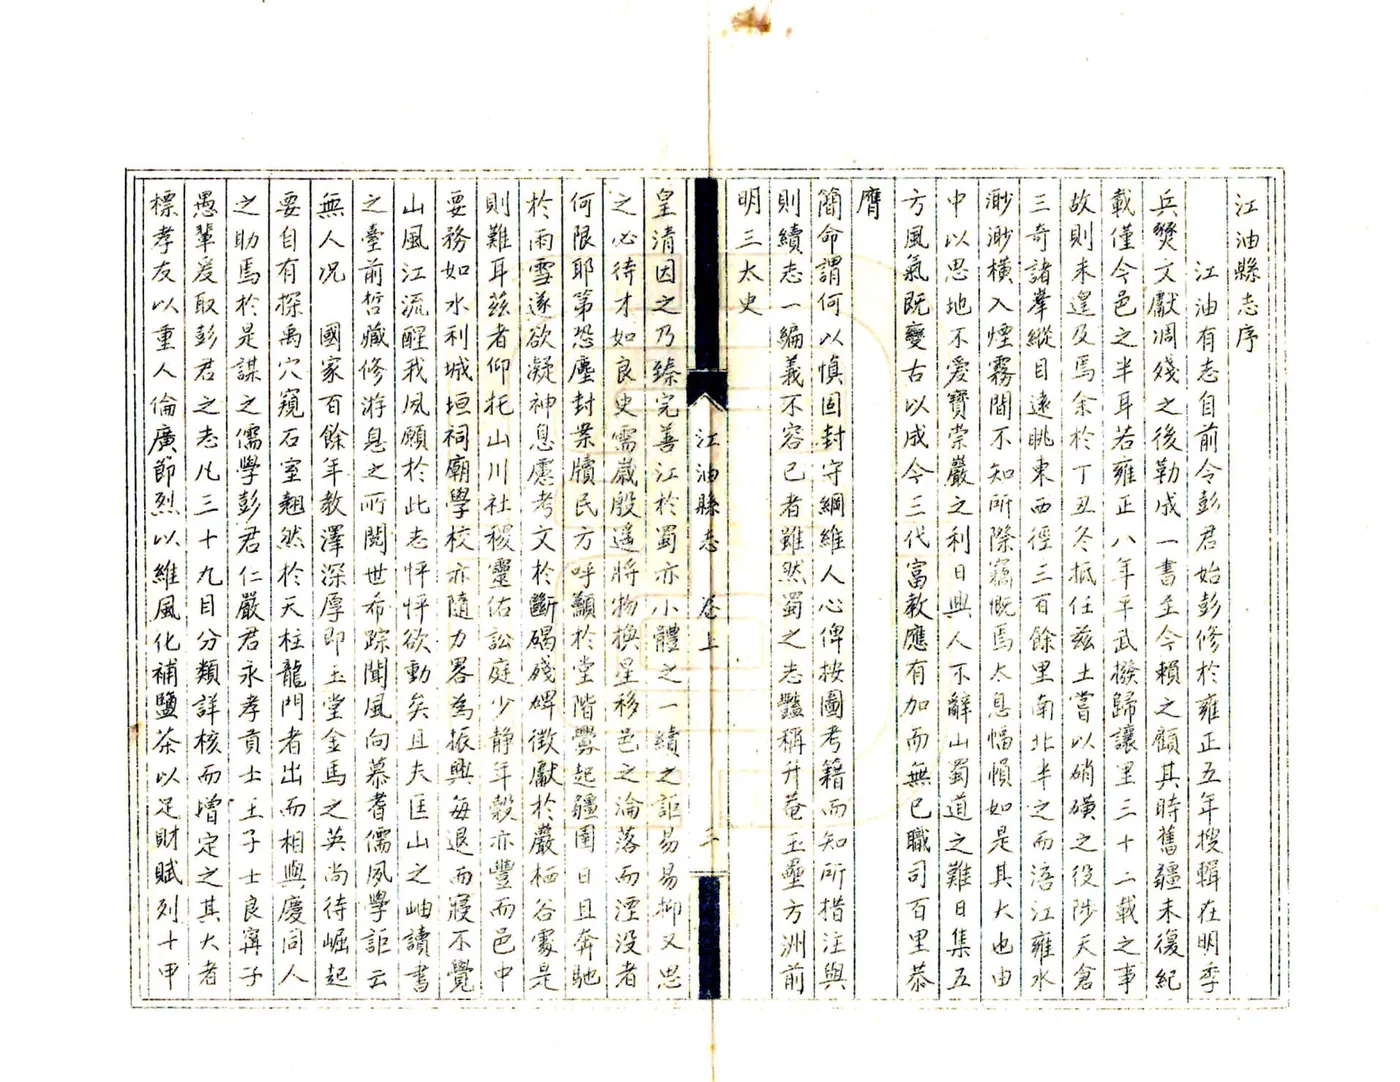 江油縣志序
江油有志自前令彭君始彭修於雍正五年搜輯在明季
兵燹文獻凋殘之後勒成一書至今賴之顧其時舊疆未復紀
載僅今邑之半耳若雍正八年平武撥歸讓里三十二載之事
故則未遑及焉余於丁丑冬抵任茲土嘗以硝磺之役陟天倉
三奇諸峯縱目遠眺東西徑三百餘里南北半之而涪江雍水
渺渺橫入煙霧間不知所際竊慨焉太息幅幀如是其大也由
中以思地不愛寶崇嚴之利日興人不辭山蜀道之難日集五
方風氣既變古以成今三代富教應有加而無已職司百里恭
膺
簡命謂何以慎固封守綱維人心俾按圖考籍而知所措注與
則續志一編義不容已者雖然蜀之志豔稱升菴玉壘方洲前
明三太史
江油縣志 卷上 三
皇清因之乃臻完善江於蜀亦小體之一續之詎易易抑又思
之必待才如良史需歲殷遥將物換星移邑之淪落而湮没者
何限耶第恐塵封案牘民方呼籲於堂階釁起疆圉日且奔馳
於雨雪遂欲凝神息慮考文於斷碣殘碑徵獻於巖栖谷處是
則難耳茲者仰托山川社稷靈佑訟庭少靜年穀亦豐而邑中
要務如水利城垣祠廟學校亦隨力畧為振興每退而寢不覺
山風江流醒我夙願於此志怦怦欲動矣且夫匡山之岫讀書
之臺前哲藏修游息之所閱世希踪聞風向慕者儒夙學詎云
無人况 國家百餘年教澤深厚即玉堂金馬之英尚待崛起
要自有探禹穴窺石室翹然於天柱龍門者出而相與慶同人
之助焉於是謀之儒學彭君仁嚴君永孝貢士王子士良寗子
愚輩爰取彭君之志凡三十九目分類詳核而增定之其大者
標孝友以重人倫廣節烈以維風化補鹽茶以足財賦列十甲